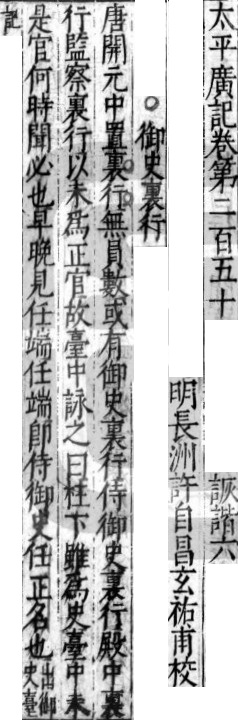 太平廣記卷第二百五十 詼諧六
明長洲許自昌玄祐甫校
○御史裏行
唐開元中置裏行無員數或有御史裏行侍御史裏行殿中裏
行監察裏行以未爲正官故臺中詠之曰柱下雖爲史臺中未
是官何時聞必也早晚見任端任端即侍御史任正名也出御史臺
記